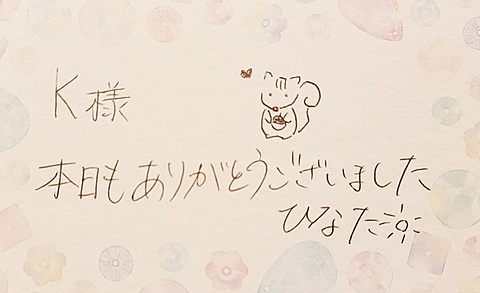 K様
本日もありがとうございました
ひなた